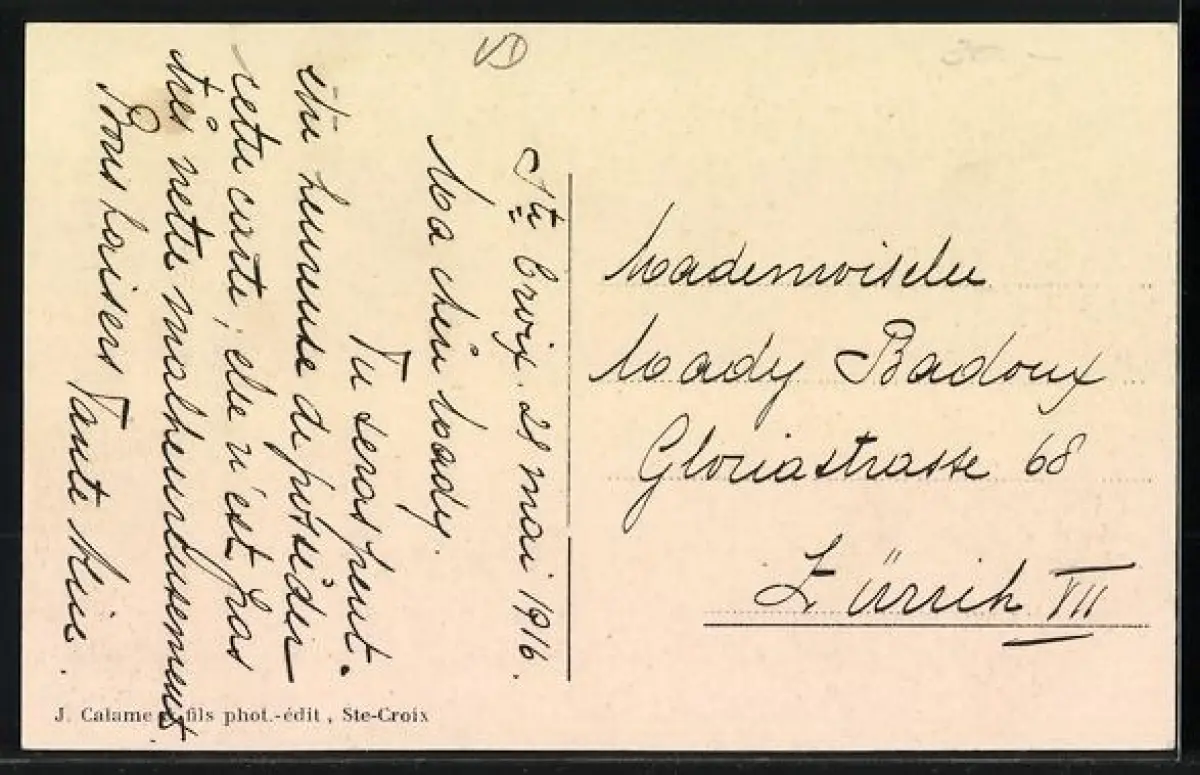 VD
Ste Croix. 28 mai 1916.
Ma chère Mady.
Tu seras peut-
être heureuse de posséder
cette carte; elle n'est pas
très nette malheureusement
Bons baisers Tante
Mademoiselle
Mady Badoux
Gloriastrasse 68
Zürich VII
J. Calame & fils phot.-édit, Ste-Croix